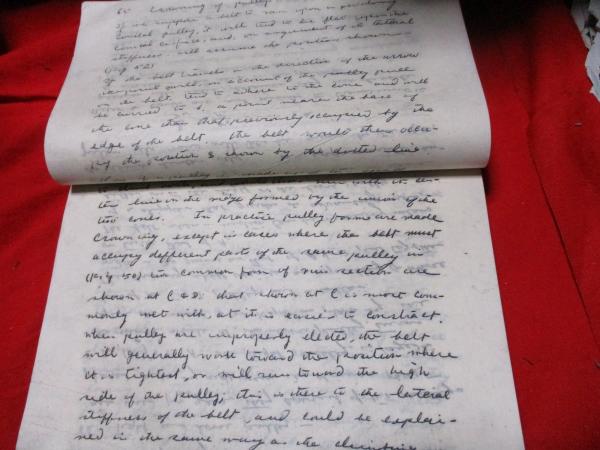 65 Crowning of pulleys
If we suppose a belt to run upon a revolving
conical pulley, it will tend to lie flat upon the
conical surface, and, on account of its lateral
stiffness will assume the position shown
(fig 52)
If the belt travels in the direction of the arrow
the point will, on account of the pulley
on the belt, tend to adhere to the cone and will
be carried to b, a point nearer the base of
the cone than that previously occupied by the
edge of the belt. the belt would then occu-
py the position shown by the dotted line.
with its cen-
ter line on the ridge formed by the union of the
two cones. In practice pulley forms are made
crowning, except in cases where the belt must
accupy different parts of the same pulley in
(fig 50) two common form of rim section are
shown at C & D. that shown at C is most com-
monly met with, at it is easier to constract.
when pulleys are improperly elected, the belt
will generally work toward the position where
it is tightest, or will run toward the high
side of the pulley; this is there to the lateral
stiffness of the belt, and could be explai-
ned in the same way as the climbing